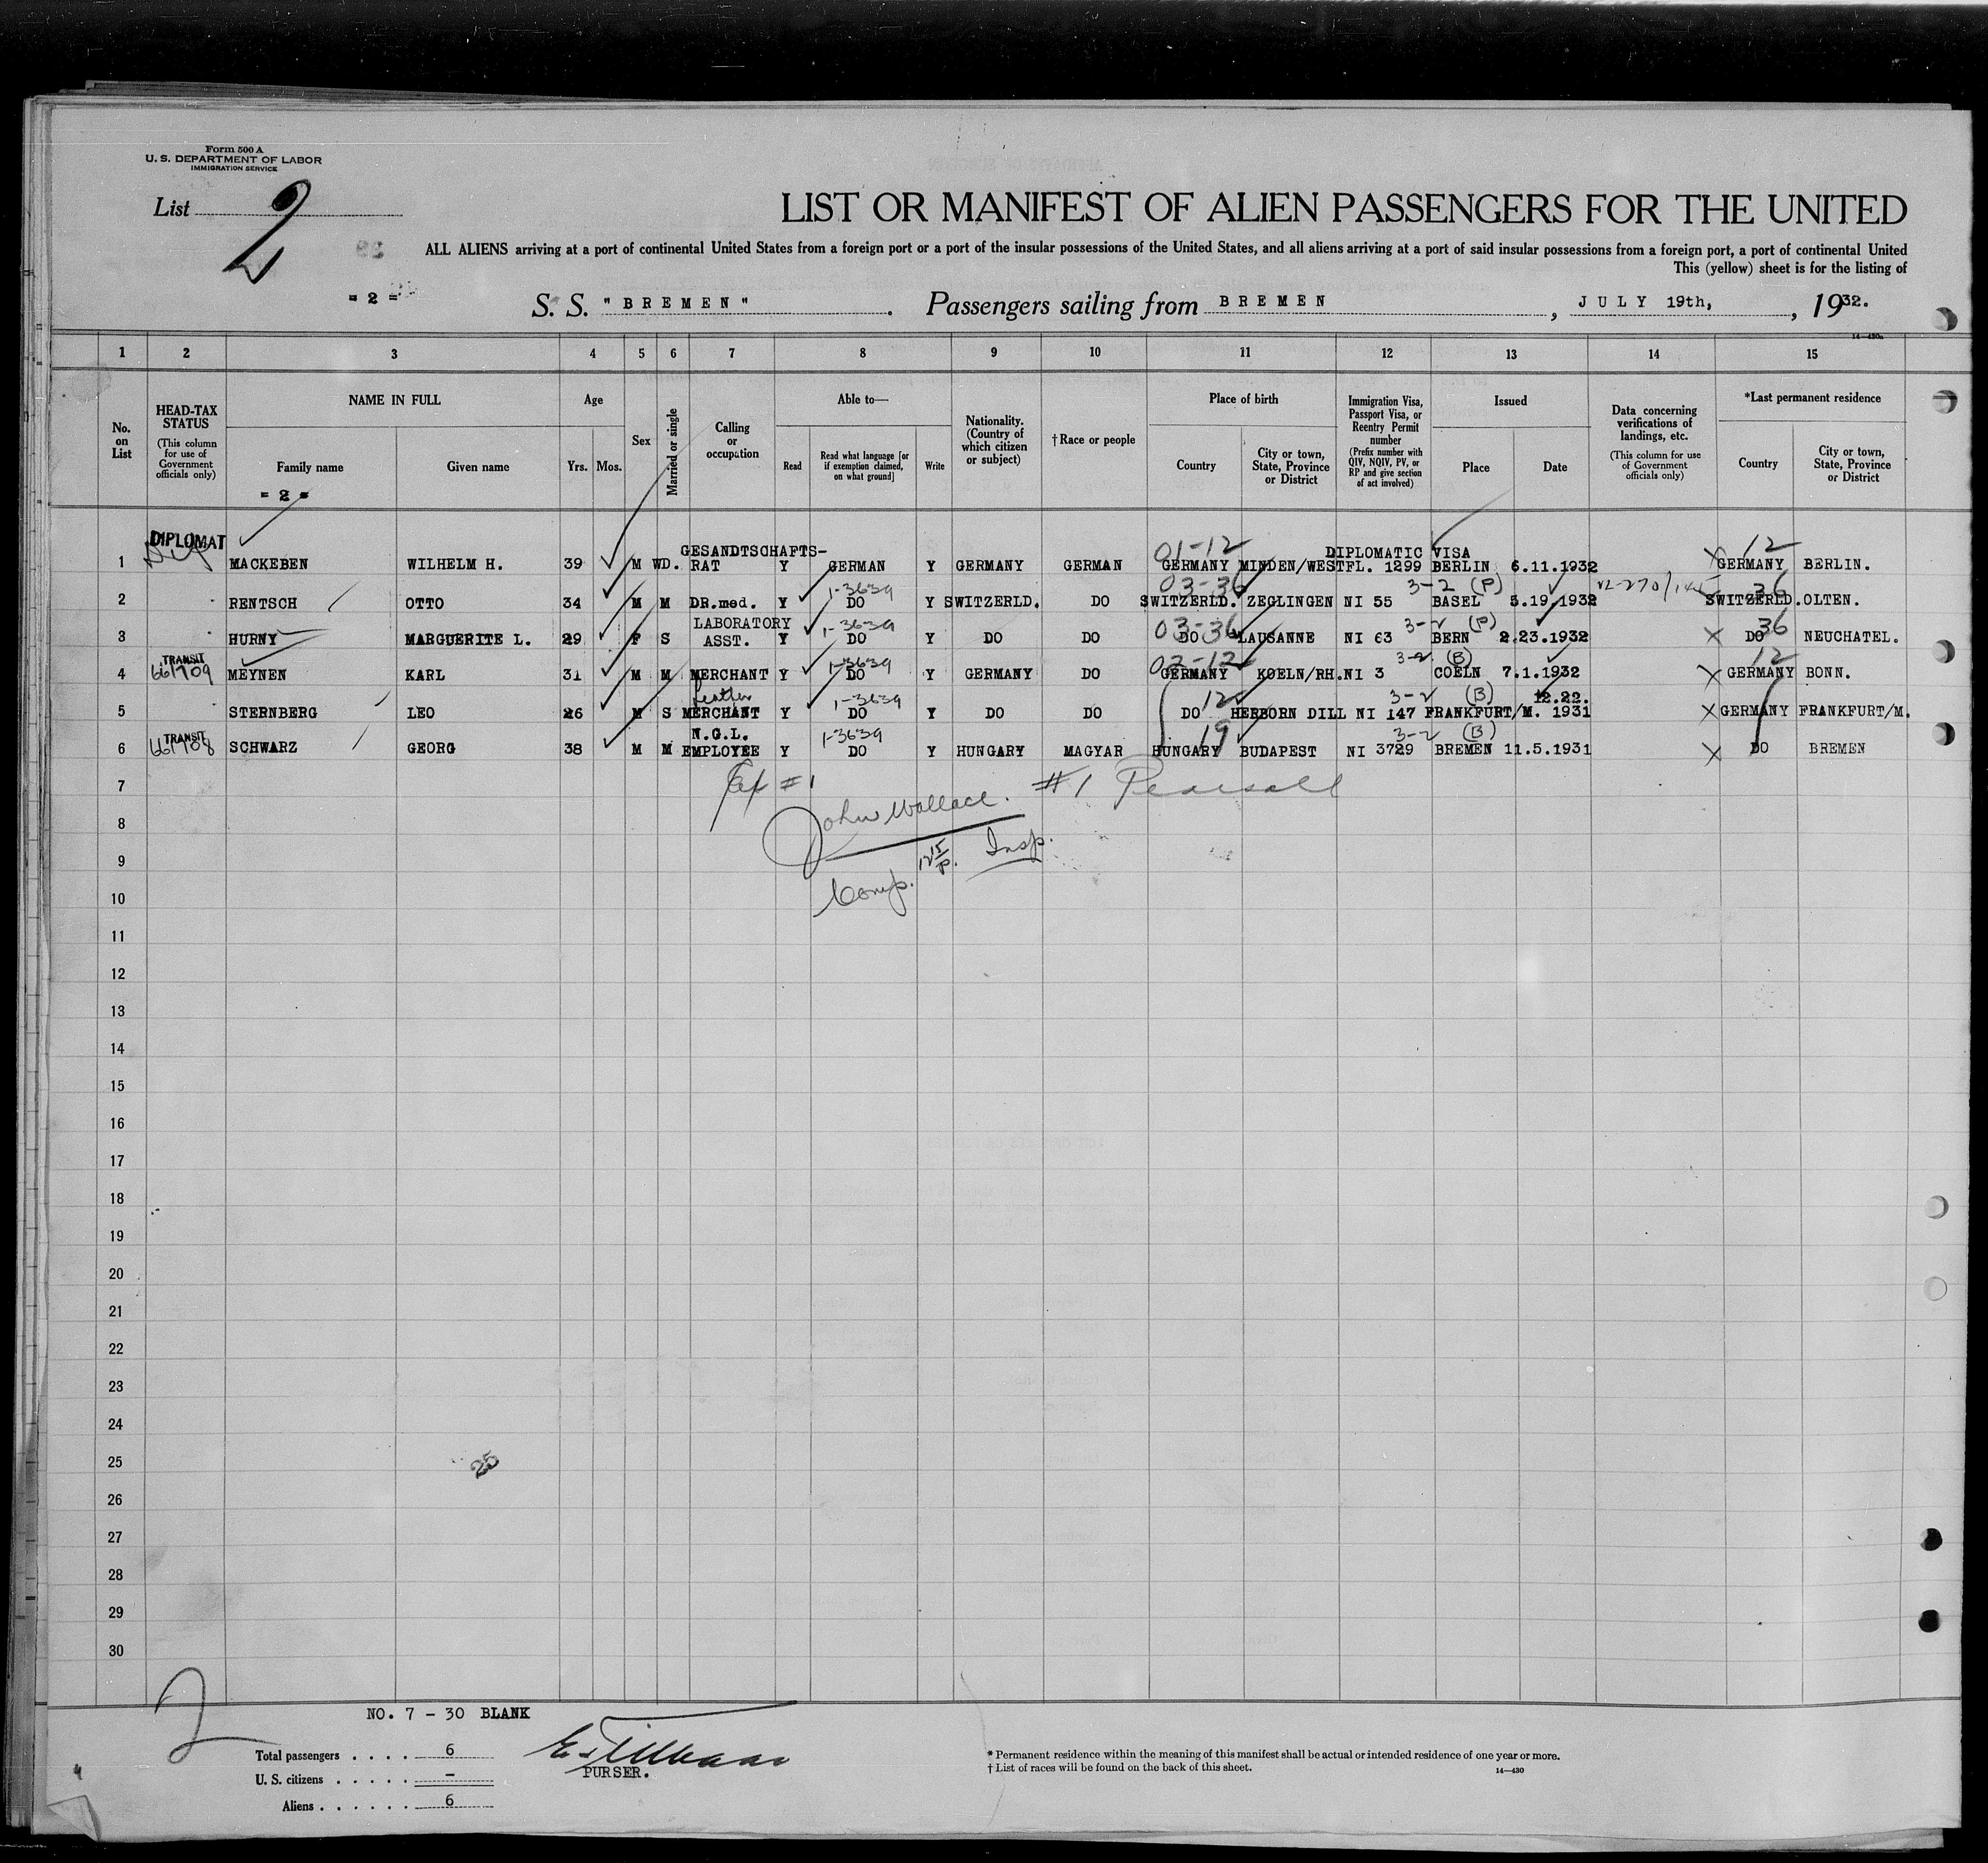 Form 500 A
U. S. DEPARTMENT OF LABOR
IMMIGRATION SERVICE
List 2
LIST OR MANIFEST OF ALIEN PASSENGERS FOR THE UNITED
ALL ALIENS arriving at a port of continental United States from a foreign port or a port of the insular possessions of the United States, and all aliens arriving at a port of said insular possessions from a foreign port, a port of continental United
This (yellow) sheet is for the listing of
= 2 =
S. S. "BREMEN". Passengers sailing from BREMEN, JULY 19th, 1932.
14—430a
1 2 3 4 5 6 7 8 9 10 11 12 13 14 15
No. on List
HEAD-TAX STATUS (This column for use of Government officials only)
NAME IN FULL
Family name
Given name
= 2 =
Age
Yrs. Mos.
Sex
Married or single
Calling or occupation
Able to—
Read
Read what language [or if exemption claimed, on what ground]
Write
Nationality. (Country of which citizen or subject)
†Race or people
Place of birth
Country
City or town, State, Province or District
Immigration Visa, Passport Visa, or Reentry Permit number (Prefix number with QIV, NQIV, PV, or RP and give section of act involved)
Issued
Place
Date
Data concerning verifications of landings, etc. (This column for use of Government officials only)
*Last permanent residence
Country
City or town, State, Province or District
DIPLOMAT GESANDTSCHAFTS- 01-12 DIPLOMATIC VISA 12
1 Dip MACKEBEN WILHELM H. 39 M WD. RAT Y GERMAN Y GERMANY GERMAN GERMANY MINDEN/WESTFL. 1299 BERLIN 6.11.1932 X GERMANY BERLIN.
1-3639 03-36 3-2 (P) 36
2 RENTSCH OTTO 34 M M DR.med. Y DO Y SWITZERLD. DO SWITZERLD. ZEGLINGEN NI 55 BASEL 5.19.1932 SWITZERLD. OLTEN.
LABORATORY 1-3639 03-36 3-2 (P) 36
3 HURNY MARGUERITE L. 29 F S ASST. Y DO Y DO DO DO LAUSANNE NI 63 BERN 2.23.1932 X DO NEUCHATEL.
TRANSIT 1-3639 02-12 3-2 (B) 12
4 661709 MEYNEN KARL 31 M M MERCHANT Y DO Y GERMANY DO GERMANY KOELN/RH. NI 3 COELN 7.1.1932 X GERMANY BONN.
leather 1-3639 12 3-2 (B) 12.22.
5 STERNBERG LEO 26 M S MERCHANT Y DO Y DO DO DO HERBORN DILL NI 147 FRANKFURT/M. 1931 X GERMANY FRANKFURT/M.
TRANSIT N.G.L. 1-3639 19 3-2 (B)
6 661708 SCHWARZ GEORG 38 M M EMPLOYEE Y DO Y HUNGARY MAGYAR HUNGARY BUDAPEST NI 3729 BREMEN 11.5.1931 X DO BREMEN
7 #1 #1 Pearsall
8 John Wallace.
9 Insp.
10 Comp.
11
12
13
14
15
16
17
18
19
20
21
22
23
24
25 25
26
27
28
29
30
2
NO. 7 - 30 BLANK
Total passengers .... 6
U. S. citizens ..... –
Aliens ...... 6
PURSER.
* Permanent residence within the meaning of this manifest shall be actual or intended residence of one year or more.
† List of races will be found on the back of this sheet.
14—430